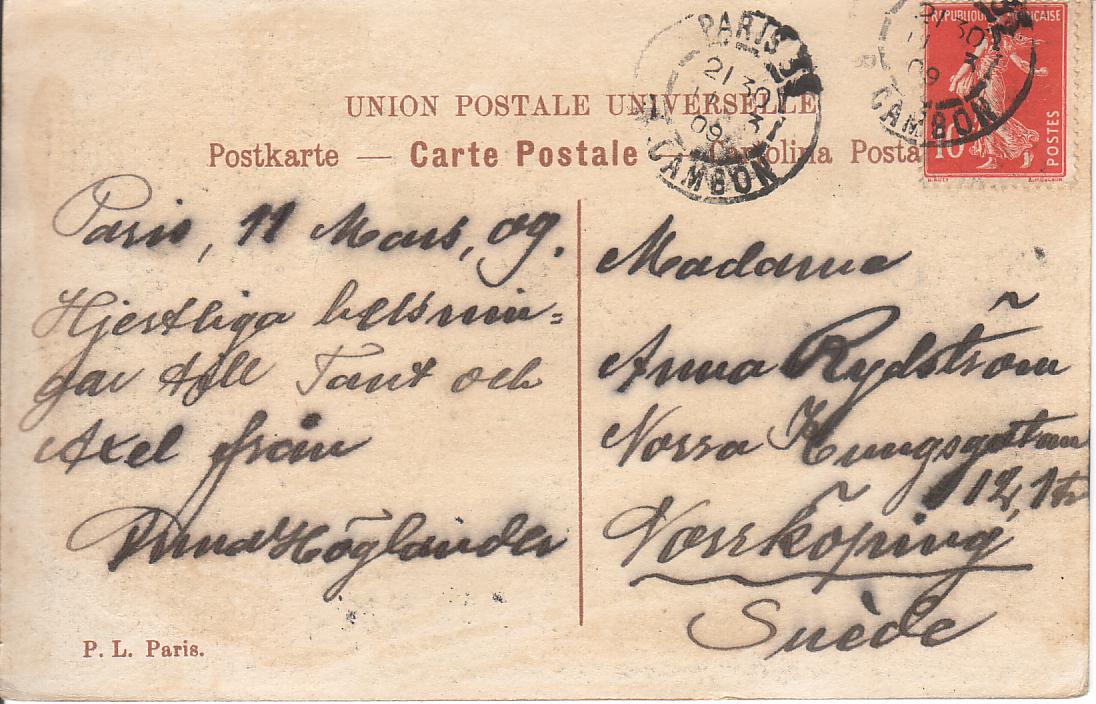 UNION POSTALE UNIVERSELLE
Postkarte — Carte Postale — Cartolina Posta
REPUBLIQUE FRANÇAISE
10
POSTES
PARIS
21 30
09
CAMBON
21 30
09
CAMBON
Paris, 11 Mars, 09.
Hjertliga helsnin=
gar till Tant och
Axel från
Höglander
Madame
Anna Rydström
Norra Kungsgatan
12, 1 tr
Norrköping
Suède
P. L. Paris.